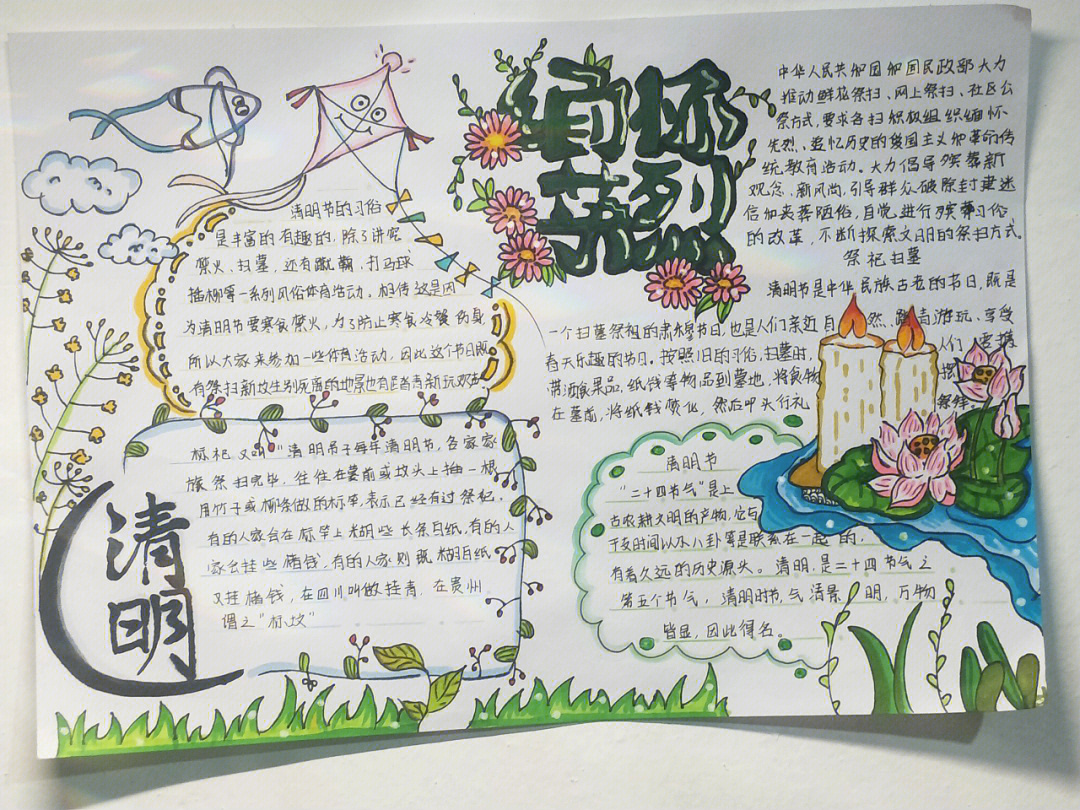 缅怀
英烈
中华人民共和国和国民政部大力
推动鲜花祭扫、网上祭扫、社区公
祭方式,要求各扫积极组织缅怀
先烈、追忆历史的爱国主义和革命传
统教育活动。大力倡导殡葬新
观念、新风尚,引导群众破除封建迷
信和丧葬陋俗,自觉进行殡葬习俗
的改革,不断探索文明的祭扫方式
祭祀扫墓
清明节是中华民族古老的节日,既是
一个扫墓祭祖的肃穆节日,也是人们亲近自然、踏青游玩、享受
春天乐趣的节日。按照旧的习俗,扫墓时,人们要携
带酒食果品、纸钱等物品到墓地,将食物
在墓前,将纸钱焚化,然后叩头行礼祭拜。
清明节的习俗
是丰富的有趣的,除了讲究
禁火、扫墓,还有蹴鞠、打马球
插柳等一系列风俗体育活动。相传这是因
为清明节要寒食禁火,为了防止寒食冷餐伤身,
所以大家来参加一些体育活动,因此这个节日既
有祭扫新坟生别死离的
标祀又叫"清明吊子每年清明节,各家家
族祭扫完毕,往往在墓前或坟头上插一根
用竹子或柳条做的标竿,表示已经有过祭祀。
有的人家会在标竿上糊些长条白纸,有的人
家会挂些楮钱,有的人家则既糊白纸
又挂楮钱,在四川叫做挂青,在贵州
谓之"标坟"
清
明
清明节
"二十四节气"是上
古农耕文明的产物,它与
干支时间以水八卦等是联系在一起的,
有着久远的历史源头。清明,是二十四节气之
第五个节气,清明时节,气清景明,万物
皆显,因此得名。